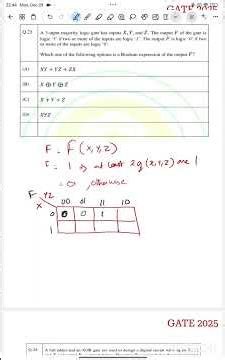 22:44 Mon, Dec 29
GATE 2025
Q.23 A 3-input majority logic gate has inputs X, Y, and Z. The output F of the gate is
logic '1' if two or more of the inputs are logic '1'. The output F is logic '0' if two
or more of the inputs are logic '0'.
Which one of the following options is a Boolean expression of the output F?
(A) XY + YZ + ZX
(B) X ⊕ Y ⊕ Z
(C) X + Y + Z
(D) XYZ
F = F(X, Y, Z)
F = 1 if at least 2 of (X, Y, Z) are 1
= 0, otherwise
F YZ
X 00 01 11 10
0 0 0 1
1
GATE 2025